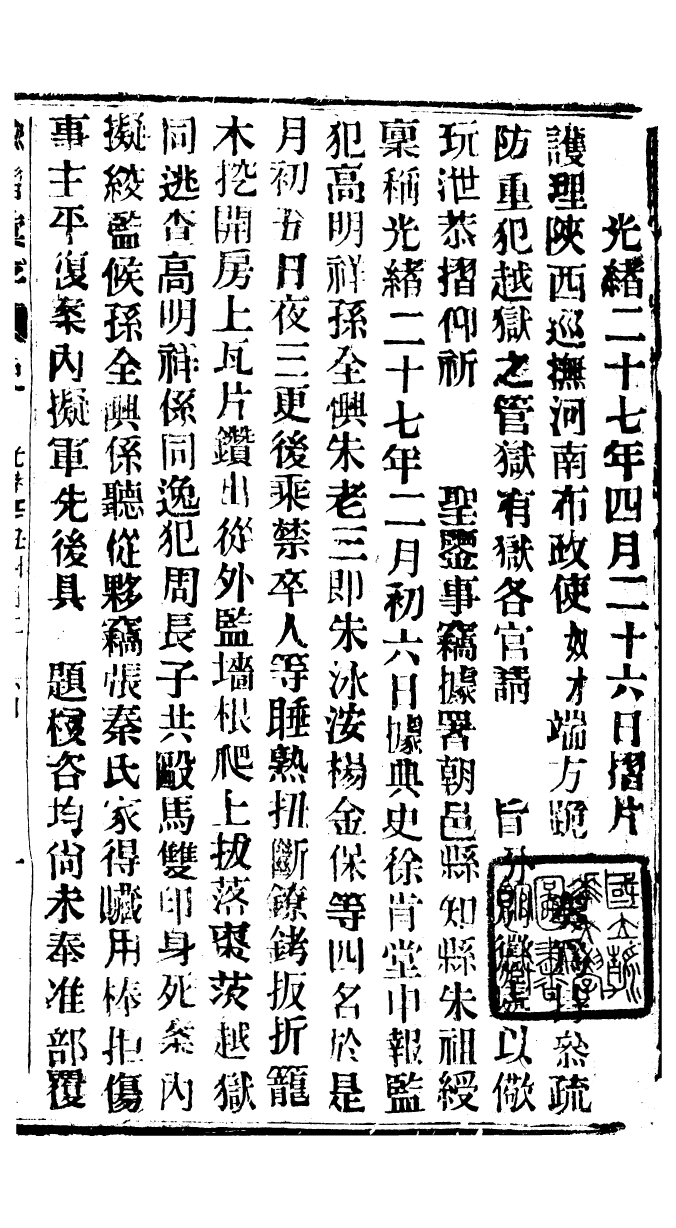 光緒二十七年四月二十六日摺片
護理陝西巡撫河南布政使奴才端方跪奏為特叅疏
防重犯越獄之管獄有獄各官請旨分別懲處以儆
玩泄恭摺仰祈聖鑒事竊據署朝邑縣知縣朱祖綬
稟稱光緒二十七年二月初六日據典史徐肯堂申報監
犯高明祥孫全興朱老三即朱泳汝楊金保等四名於是
月初五日夜三更後乘禁卒人等睡熟扭斷鐐銬扳折籠
木挖開房上瓦片鑽出從外監墻根爬上拔落棗茨越獄
同逃查高明祥係同逸犯周長子共毆馬雙印身死案內
擬絞監候孫全興係聽從夥竊張秦氏家得贜用棒拒傷
事主平復案內擬軍先後具題梗咨均尚未奉准部覆